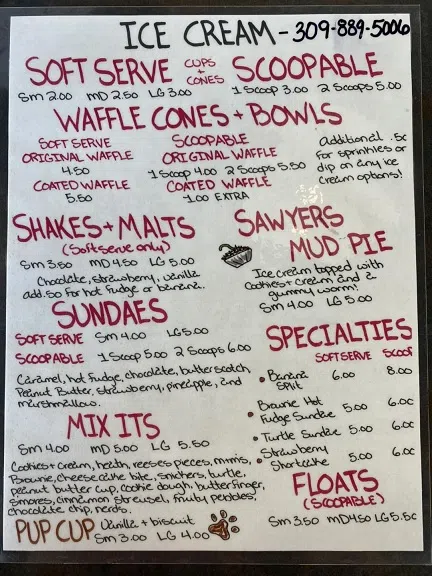 ICE CREAM - 309-889-5006
SOFT SERVE CUPS + CONES SCOOPABLE
Sm 2.00 MD 2.50 LG 3.00 1 Scoop 3.00 2 Scoops 5.00
WAFFLE CONES + BOWLS
SOFT SERVE
ORIGINAL WAFFLE
4.50
COATED WAFFLE
5.50
SCOOPABLE
ORIGINAL WAFFLE
1 Scoop 4.00 2 Scoops 5.50
COATED WAFFLE
1.00 EXTRA
Additional .50
for sprinkles or
dip on any ice
cream options!
SHAKES + MALTS
(Soft serve only)
Sm 3.50 MD 4.50 LG 5.00
Chocolate, strawberry, vanilla
add .50 for hot fudge or banana.
SAWYERS
MUD PIE
Ice cream topped with
Cookies + Cream and 2
gummy worms!
Sm 4.00 LG 5.00
SUNDAES
SOFT SERVE Sm 4.00 LG 5.00
SCOOPABLE 1 Scoop 5.00 2 Scoops 6.00
Caramel, hot fudge, chocolate, butterscotch,
Peanut Butter, strawberry, pineapple, and
marshmallow.
SPECIALTIES
SOFT SERVE SCOOP
• Banana Split 6.00 8.00
• Brownie Hot Fudge Sundae 5.00 6.00
• Turtle Sundae 5.00 6.00
• Strawberry Shortcake 5.00 6.00
MIX ITS
Sm 4.00 MD 5.00 LG 5.50
Cookies + Cream, heath, reeses pieces, m+ms,
Brownie, cheesecake bite, snickers, turtle,
peanut butter cup, cookie dough, butterfinger,
smores, cinnamon streusel, fruity pebbles,
chocolate chip, nerds.
FLOATS
(SCOOPABLE)
Sm 3.50 MD 4.50 LG 5.50
PUP CUP Vanilla + biscuit
Sm 3.00 LG 4.00